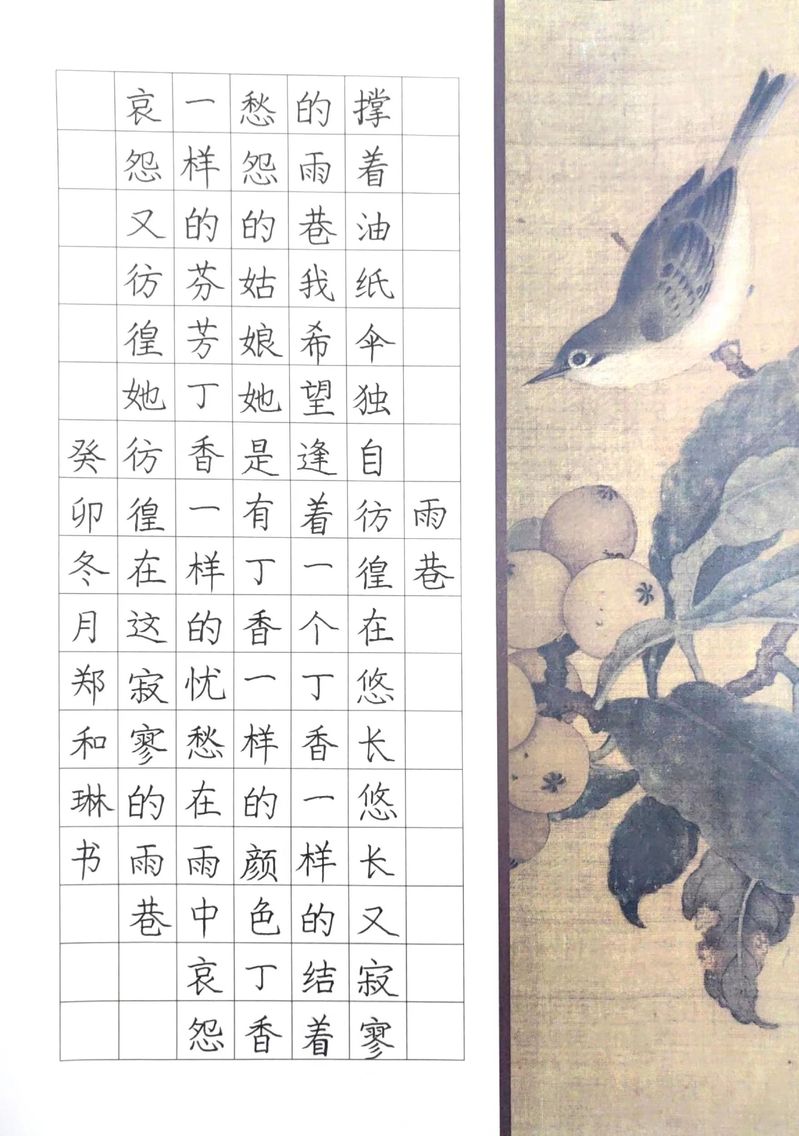 雨巷
撑着油纸伞独自彷徨在悠长悠长又寂寥
的雨巷我希望逢着一个丁香一样的结着
愁怨的姑娘她是有丁香一样的颜色丁香
一样的芬芳丁香一样的忧愁在雨中哀怨
哀怨又彷徨她彷徨在这寂寥的雨巷
癸卯冬月郑和琳书